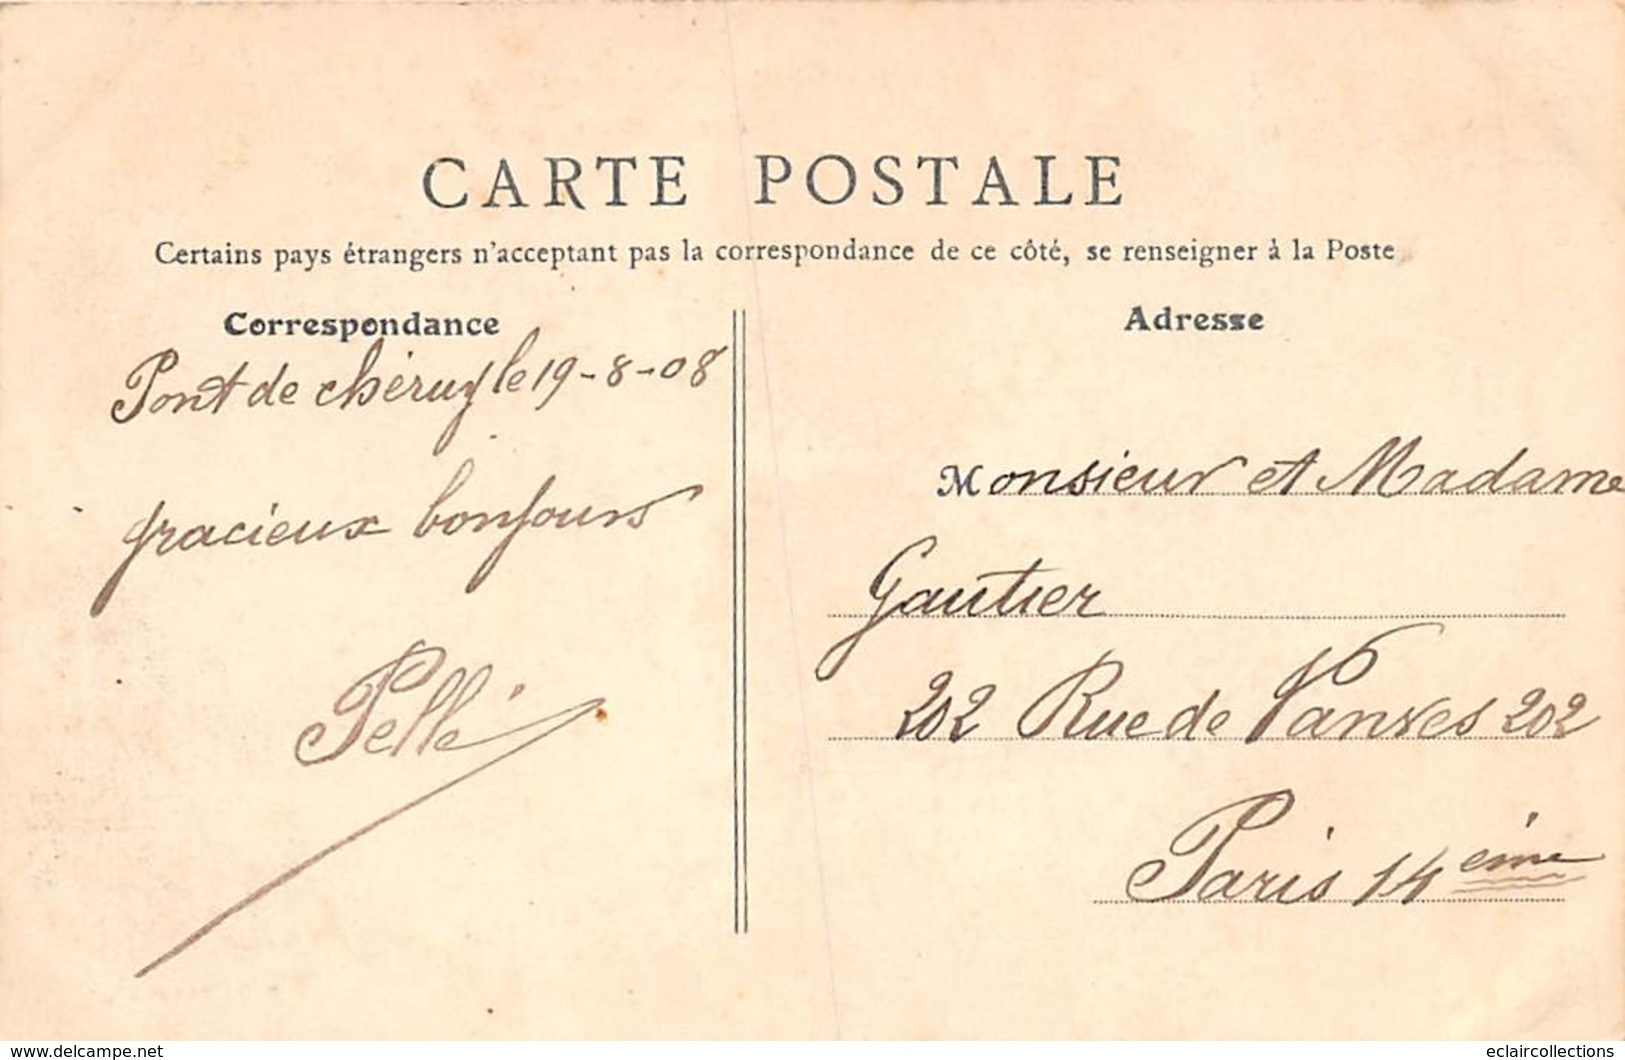 CARTE POSTALE
Certains pays étrangers n'acceptant pas la correspondance de ce côté, se renseigner à la Poste
Correspondance
Pont de chéruy le 19-8-08
gracieux bonjours
Pellé
Adresse
Monsieur et Madame
Gautier
202 Rue de Vanves 202
Paris 14ème
www.delcampe.net
eclaircollections